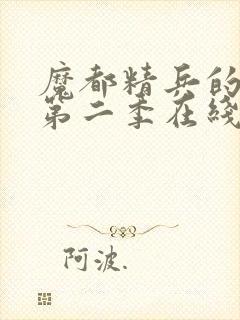 魔都精兵的
第二季在线
阿波.